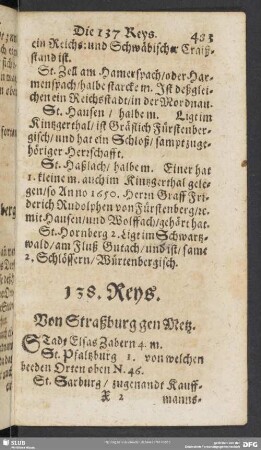 Die 137 Reys. 483
ein Reichs: und Schwäbischer Craiß-
stand ist.
St. Zell am Hamerspach/oder Har-
menspach/halbe starcke m. Ist deßglei-
chen ein Reichsstadt/in der Mordnau.
St. Hausen / halbe m. Ligt im
Kintzgerthal/ist Gräflich Fürstenber-
gisch/und hat ein Schloß/sampt zuge-
höriger Herrschafft.
St. Haßlach/halbe m. Einer hat
1. kleine m. auch im Kintzgerthal gele-
gen/so Anno 1650. Herrn Graff Fri-
derich Rudolphen von Fürstenberg/rc.
mit Hausen/und Wolffach/gehört hat.
St. Hornberg 2. Ligt im Schwartz-
wald/am Fluß Gutach/und ist/samt
2. Schlössern/Würtenbergisch.
138. Reys.
Von Straßburg gen Metz.
STadt Elsas Zabern 4. m.
St. Pfaltzburg 1. von welchen
beeden Orten oben N. 46.
St. Sarburg / zugenandt Kauff-
X 2 manns-
SLUB